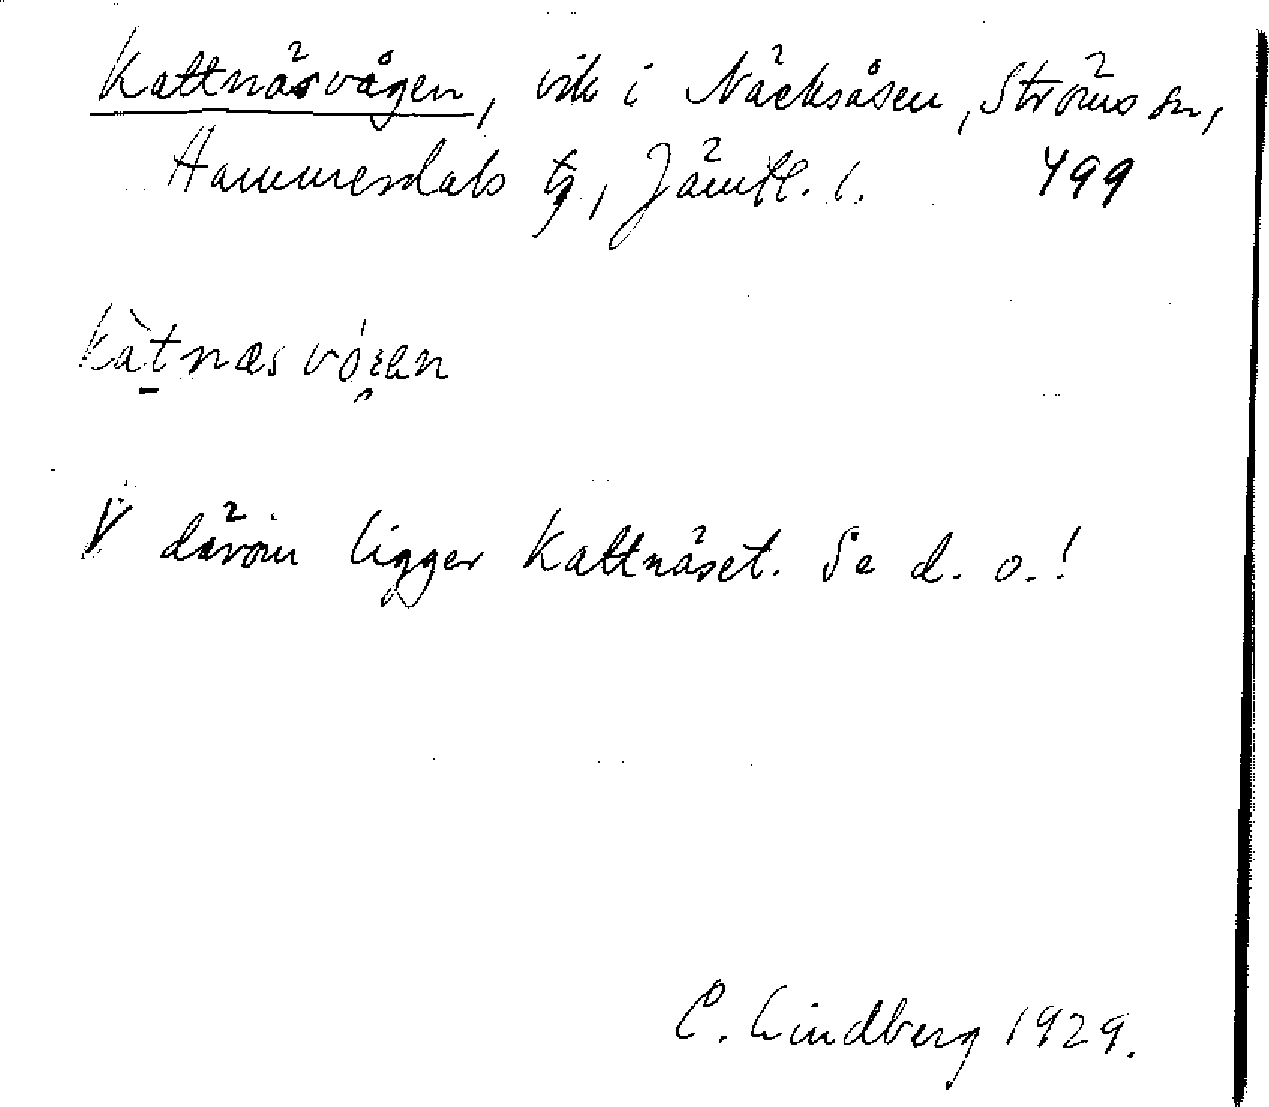 Kattnäsvågen, vik i Näcksåsen, Ströms sn,
Hammerdals tg, Jämtl. l. 499
V därom ligger Kattnäset. Se d. o.!
C. Lindberg 1929.